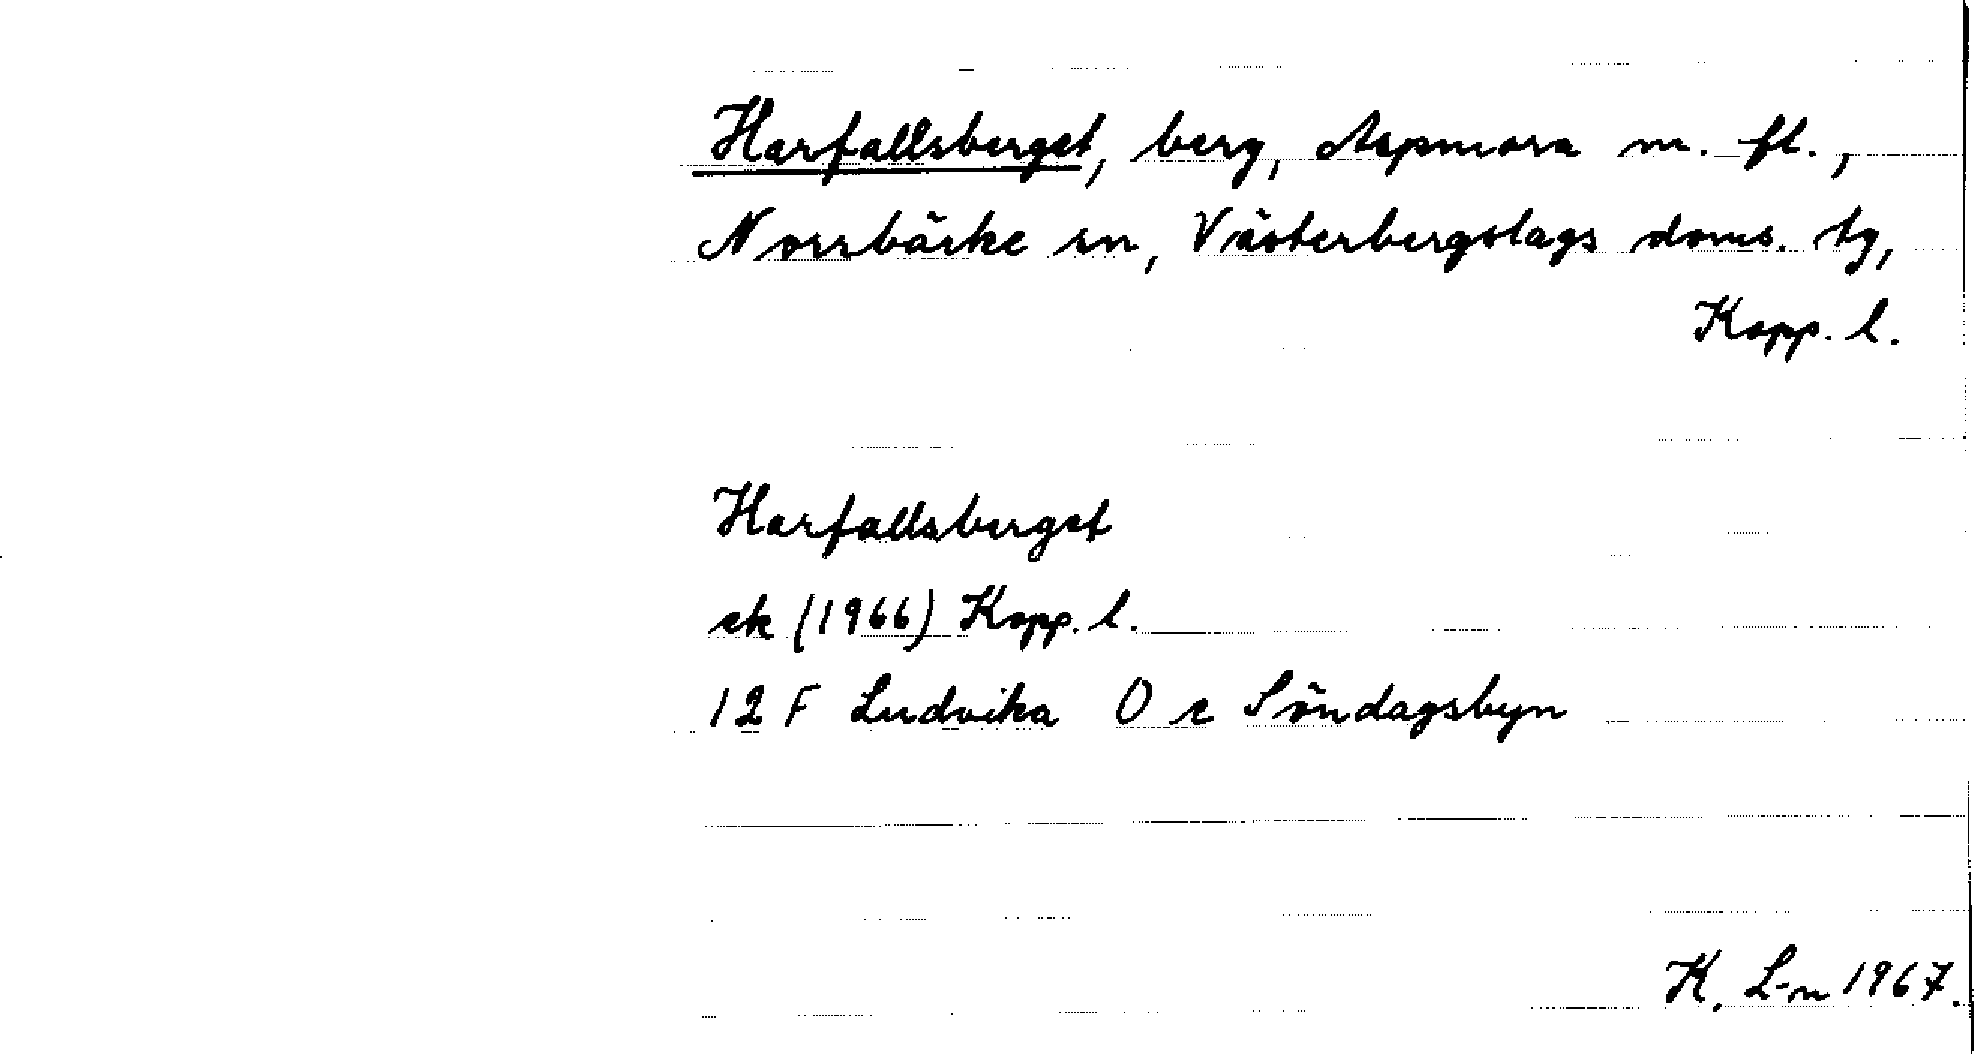 Harfallsberget, berg, Aspmora m. fl.,
Norrbärke sn, Västerbergslags doms. tg,
Kopp. l.
Harfallsberget
ek (1966) Kopp. l.
12 F Ludvika 0 c Söndagsbyn
K. L-n 1967.